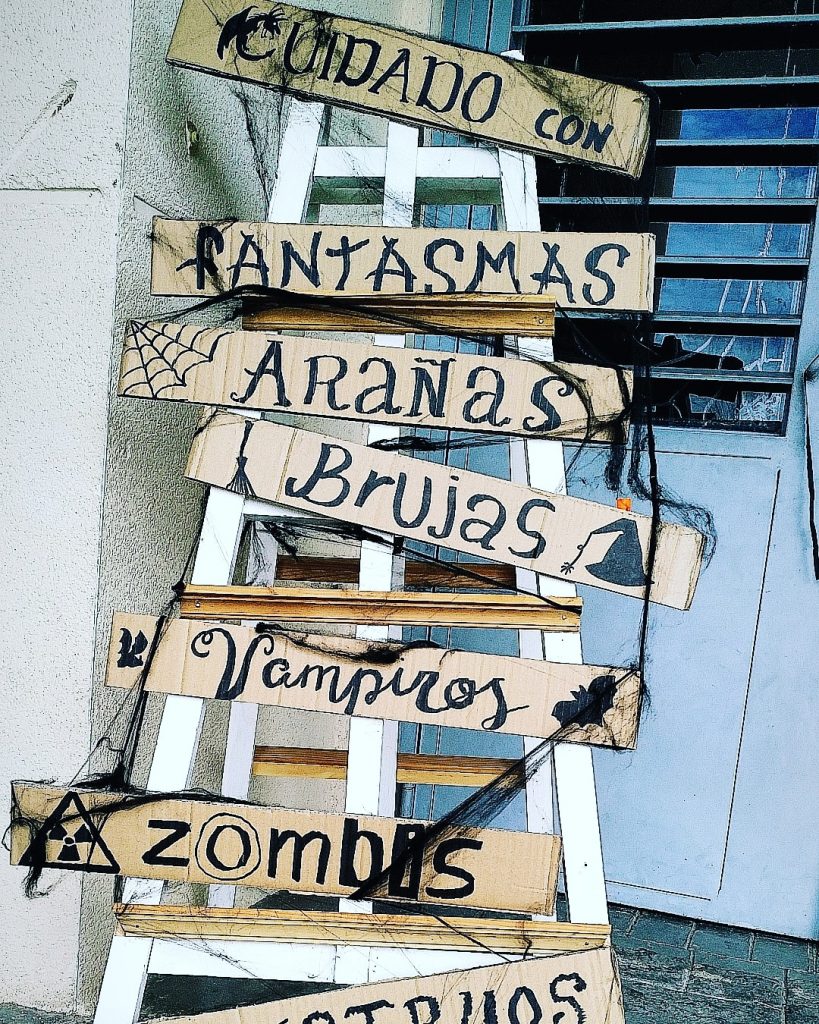 CUIDADO CON
FANTASMAS
ARAÑAS
Brujas
Vampiros
zombis